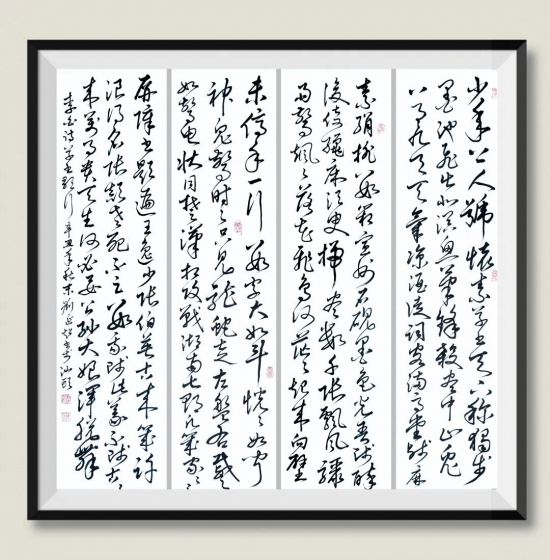 少年上人號懷素草書天下稱獨步
墨池飛出北溟魚筆鋒殺盡中山兔
八月九月天氣涼酒徒詞客滿高堂牋麻
素絹排數箱宣州石硯墨色光吾師醉
後倚繩床須臾掃盡數千張飄風驟
雨驚颯々落花飛雪何茫々起來向壁
未停手一行數字大如斗怳々如聞
神鬼驚時々只見龍蛇走左盤右蹙
如驚電狀同楚漢相攻戰湖南七郡凡幾家々々
屏障書題遍王逸少張伯英古來幾許
浪得名張顛老死不足數我師此義不師古古
來萬事貴天生何必要公孫大娘渾脫舞
李白詩草書歌行辛丑年秋末劉延書於汕頭